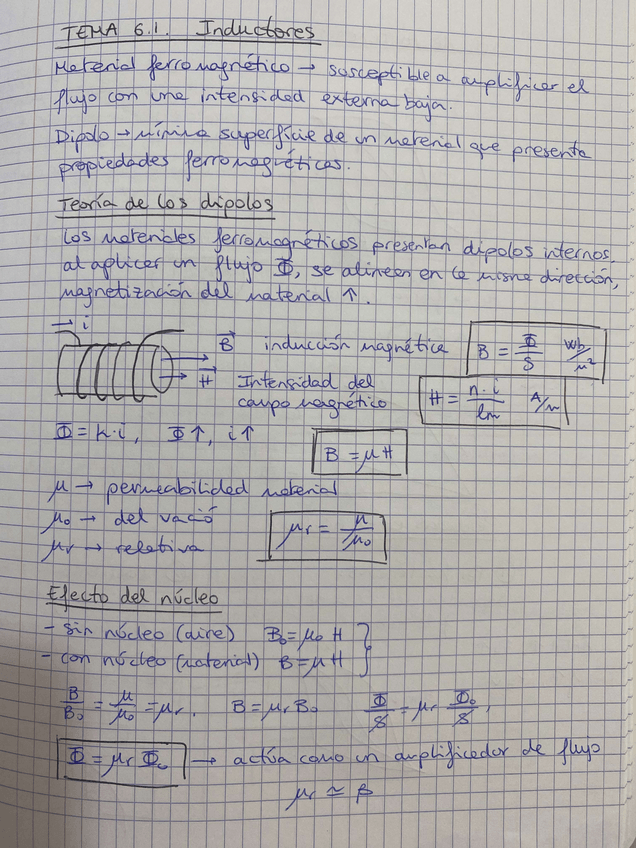 TEMA 6.1. Inductores
Material ferromagnético → susceptible a amplificar el
flujo con una intensidad externa baja.
Dipolo → mínima superfície de un material que presenta
propiedades ferromagnéticas.
Teoría de los dipolos
Los materiales ferromagnéticos presentan dipolos internos,
al aplicar un flujo Φ, se alineen en la misma dirección,
magnetización del material ↑.
→ i
B⃗ inducción magnética B = Φ/S Wb/m²
H⃗ Intensidad del
campo magnético H = n·i/lm A/m
Φ = k·i, Φ↑, i↑
B = μH
μ → permeabilidad material
μ₀ → del vació
μr → relativa μr = μ/μ₀
Efecto del núcleo
- sin núcleo (aire) B₀ = μ₀ H
- con núcleo (material) B = μH
B/B₀ = μ/μ₀ = μr, B = μr B₀ Φ/S = μr Φ₀/S,
Φ = μr Φ₀ → actúa como un amplificador de flujo
μr ≃ β